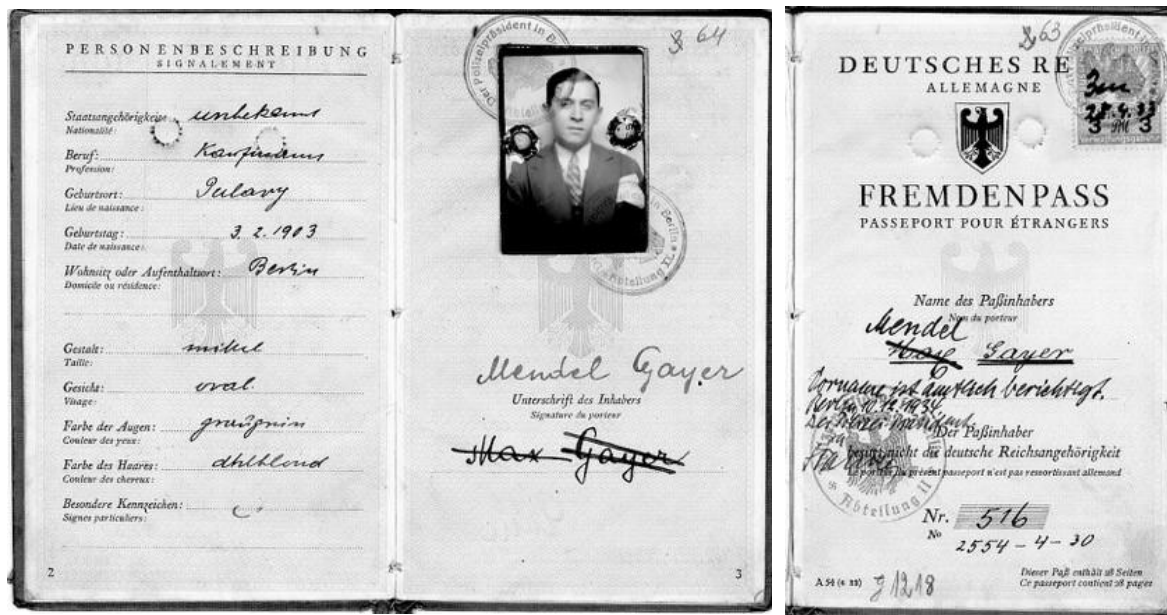 PERSONENBESCHREIBUNG
SIGNALEMENT
Staatsangehörigkeit: unbekannt
Nationalité:
Beruf: Kaufmann
Profession:
Geburtsort: Pulavy
Lieu de naissance:
Geburtstag: 3.2.1903
Date de naissance:
Wohnsitz oder Aufenthaltsort: Berlin
Domicile ou résidence:
Gestalt: mittel
Taille:
Gesicht: oval.
Visage:
Farbe der Augen: graugrün
Couleur des yeux:
Farbe des Haares: dklblond
Couleur des cheveux:
Besondere Kennzeichen:
Signes particuliers:
2
64
Der Polizeipräsident in B
in Berlin
Abteilung II
Mendel Gayer
Unterschrift des Inhabers
Signature du porteur
Max Gayer
3
63
DEUTSCHES RE
ALLEMAGNE
28.4.33
3 3
FREMDENPASS
PASSEPORT POUR ÉTRANGERS
Name des Paßinhabers
Nom du porteur
Mendel
Max Gayer
Vorname ist amtlich berichtigt.
Berlin 10.12.1934
Der Polizeipräsident
Der Paßinhaber
besitzt nicht die deutsche Reichsangehörigkeit
Le porteur du présent passeport n'est pas ressortissant allemand
Abteilung II
Nr. 516
No
2554-4-30
Dieser Paß enthält 28 Seiten
Ce passeport contient 28 pages
A 54 (6 32)
1218